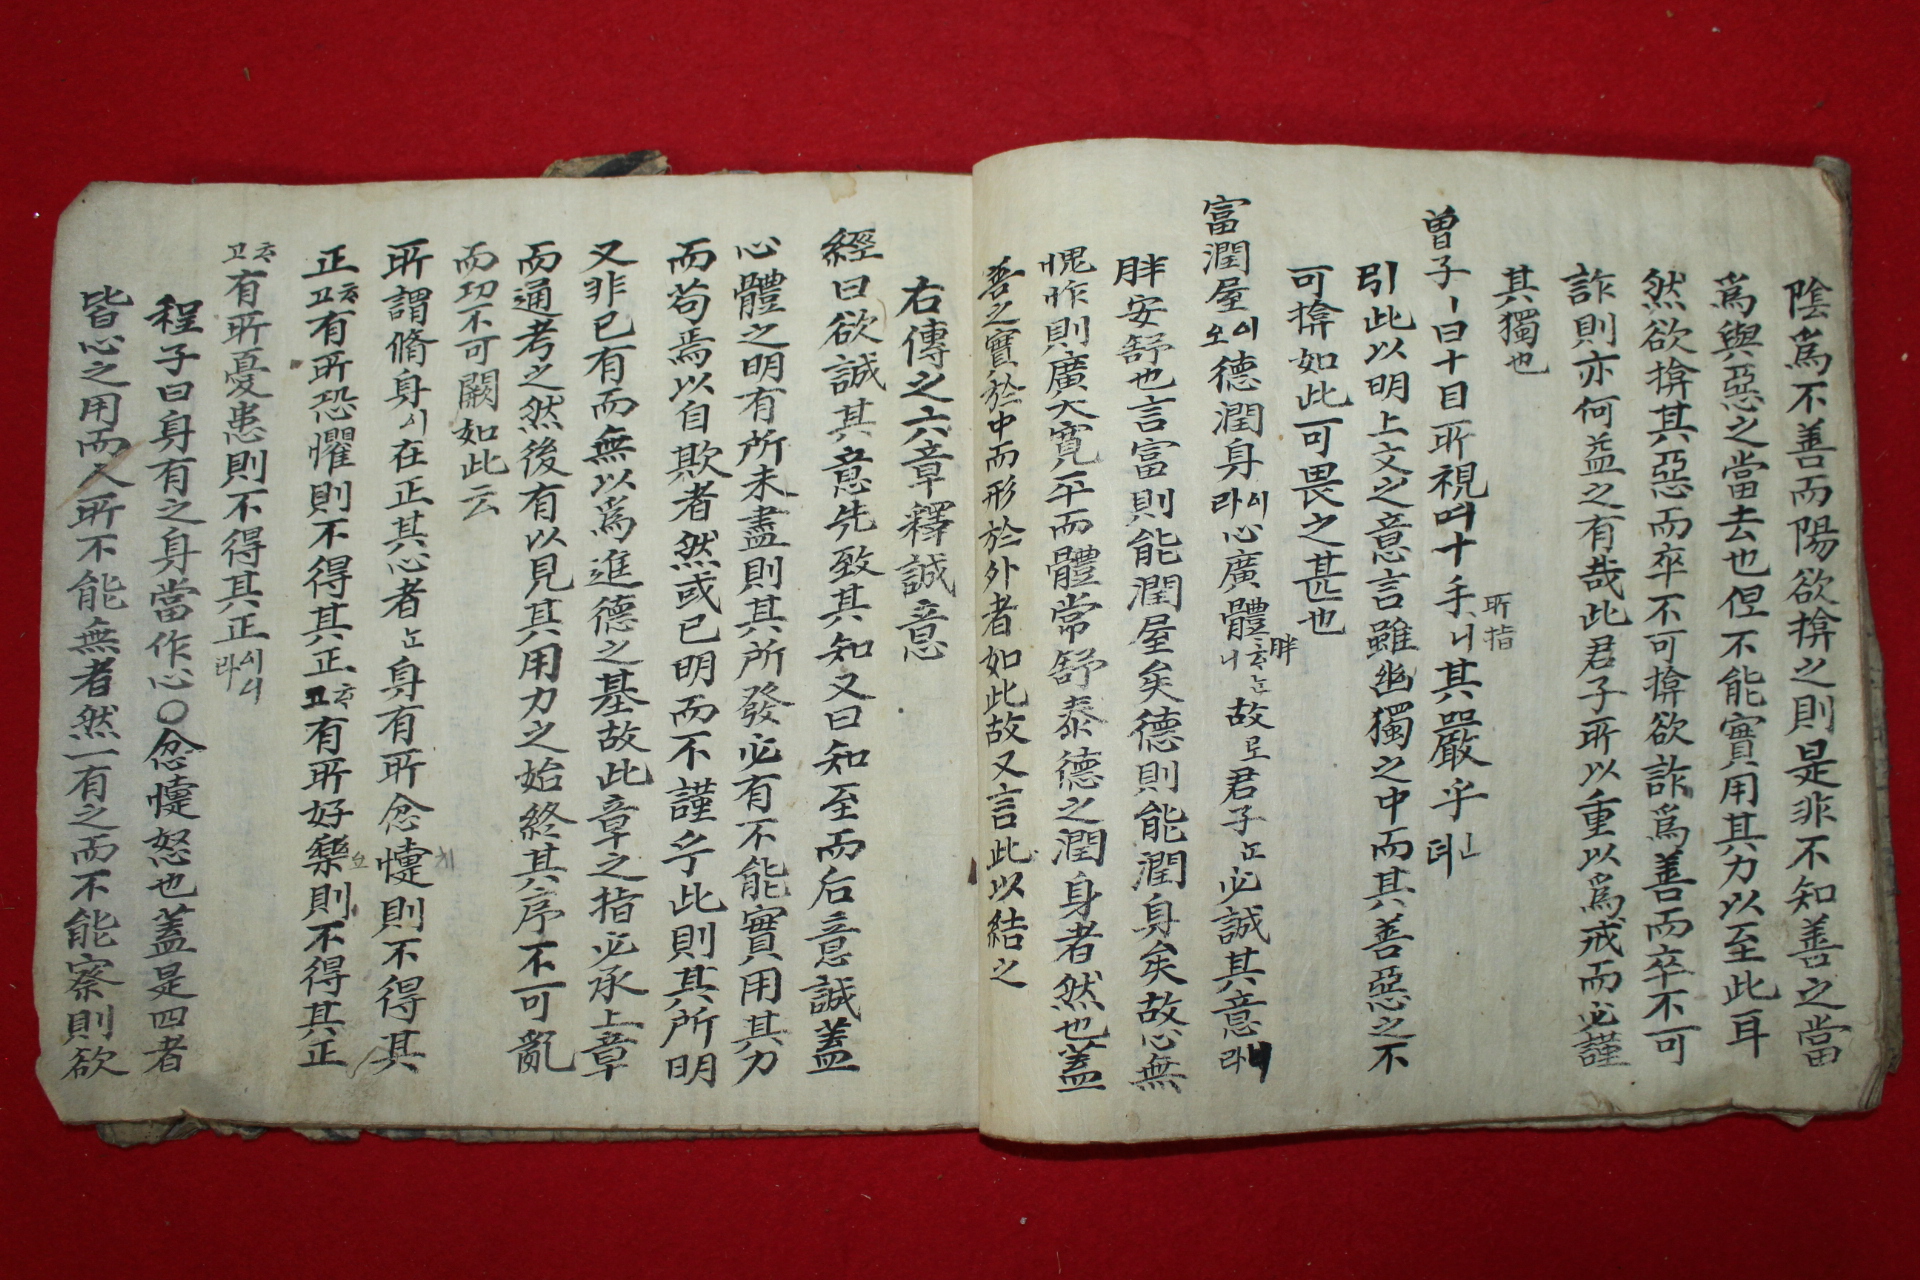 陰爲不善而陽欲揜之則是非不知善之當
爲與惡之當去也但不能實用其力以至此耳
然欲揜其惡而卒不可揜欲詐爲善而卒不可
詐則亦何益之有哉此君子所以重以爲戒而必謹
其獨也
曾子ㅣ曰十目所視며十手所指니其嚴乎ᅟᅵᆫ뎌
引此以明上文之意言雖幽獨之中而其善惡之不
可揜如此可畏之甚也
富潤屋이오德潤身이라心廣體胖ᄒᆞᄂᆞ니故로君子ᄂᆞᆫ必誠其意니라
胖安舒也言富則能潤屋矣德則能潤身矣故心無
愧怍則廣大寬平而體常舒泰德之潤身者然也蓋
善之實於中而形於外者如此故又言此以結之
右傳之六章釋誠意
經曰欲誠其意先致其知又曰知至而后意誠蓋
心體之明有所未盡則其所發必有不能實用其力
而苟焉以自欺者然或已明而不謹乎此則其所明
又非已有而無以爲進德之基故此章之指必承上章
而通考之然後有以見其用力之始終其序不可亂
而功不可闕如此云
所謂脩身이在正其心者ᄂᆞᆫ身有所忿懥則不得其
正ᄒᆞ고有所恐懼則不得其正ᄒᆞ고有所好樂則不得其正
ᄒᆞ고有所憂患則不得其正이니라
程子曰身有之身當作心〇忿懥怒也蓋是四者
皆心之用而人所不能無者然一有之而不能察則欲